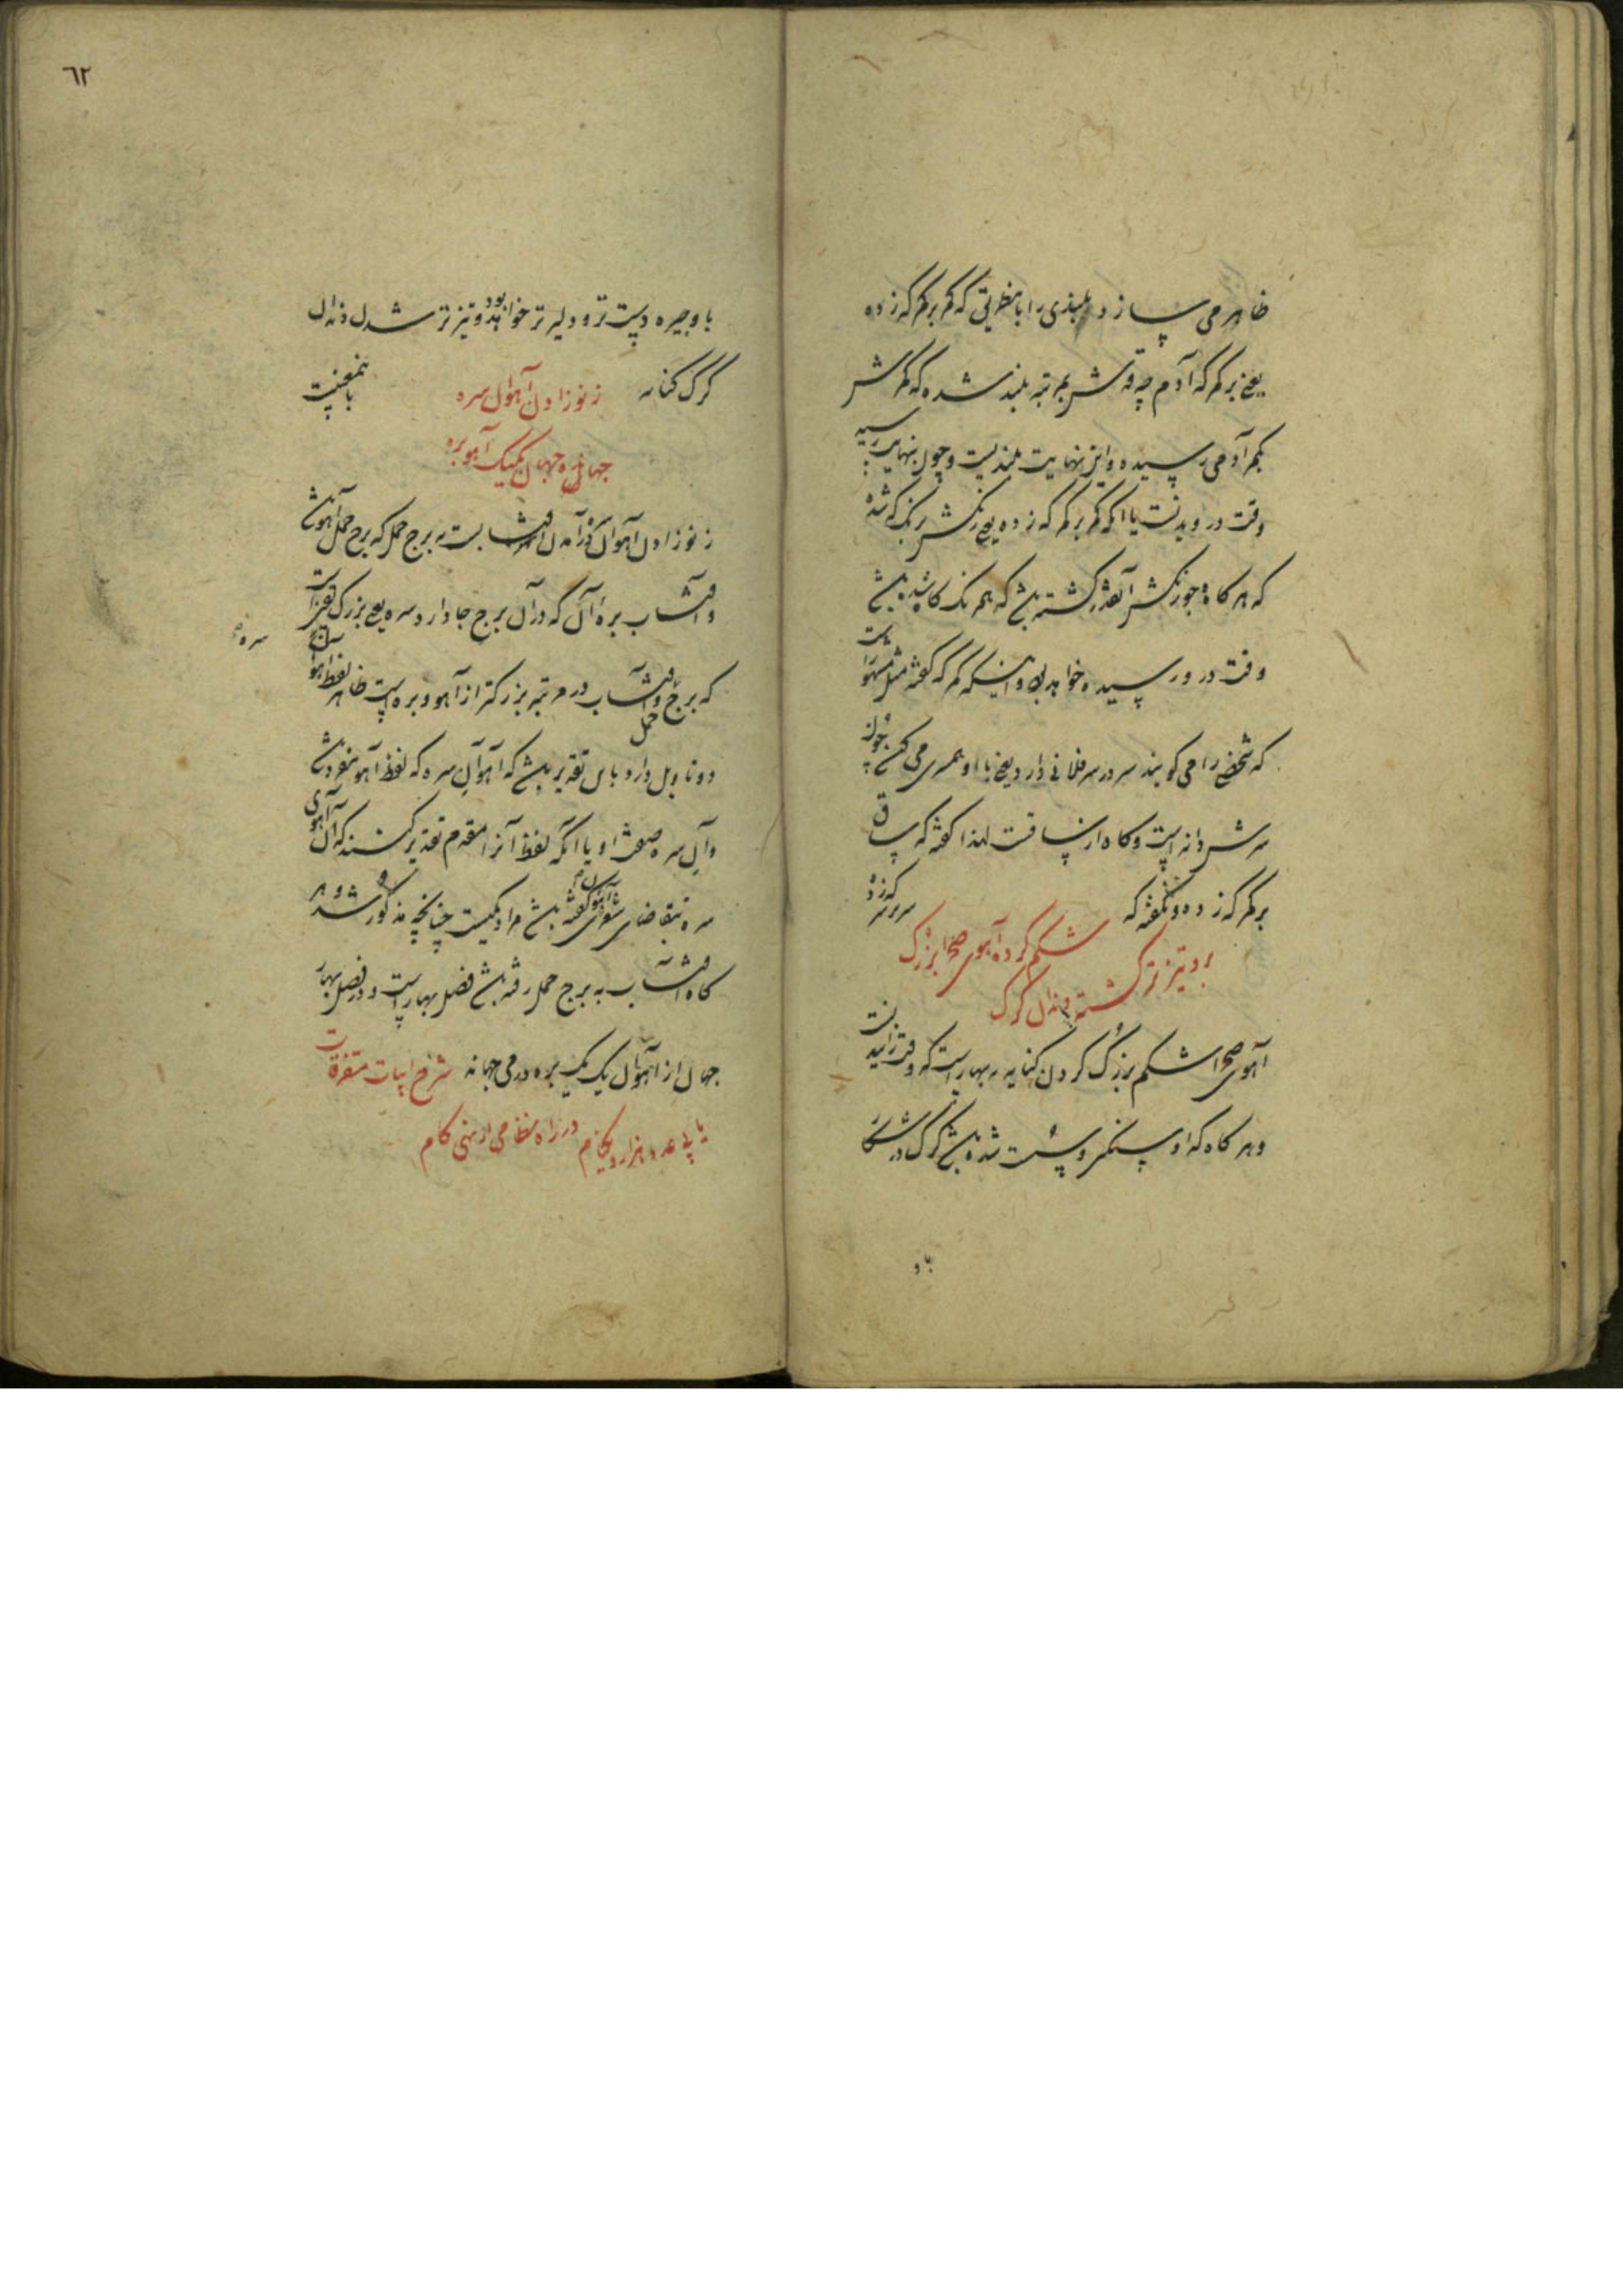 ظاهر می سازد و بلندی را باینطریق که کمر بر کمر که زده
یعنی بر کمر که آدم چه قدش بمرتبه بلند شده که کمرش
بکمر آدمی رسیده و این نهایت بلندیست و چون بنهایت رسید
وقت درویدنست یا انکه کمر بر کمر که زده یعنی رنکش برنک که شده
که هرکاه جو رنکش آنقدر کشته باشد که همرنک کاه شده باشد
وقت درو رسیده خواهد بود و اینکه کمر که کفته مثل مشهور است
که شخصی را می کویند سر در سر فلانی دارد یعنی با او همسری می کند چون
سرش دانه است و کاه از ساقست لهذا کفته که ساق
بر کمر که زده و نکفته که سر بر سر که زده
شکم کرده آهوی صحرا بزرک
برو تیزتر کشته دندان کرک
آهوی صحرا شکم بزرک کردن کنایه به بهار است که وقت زاییدنست
و هرکاه که او سنکین و سست شده باشد کرک در شکار
باو
٦٢
باو چیره دست تر و دلیرتر خواهد بود و تیزتر شدن دندان
کرک کنایه باینمعنیست
ز نوزادن آهوان سره
جهان در جهان یک بیک آهو بره
ز نوزادن آهوان در آمدن آفتابست به برج حمل که برج حمل آهوش
و آفتاب بره آن که در آن برج جا دارد سره یعنی بزرک نغز است
که برج حمل و آفتاب در مرتبه بزرکتر از آهو و بره است ظاهر لفظ آهوان
سره
دو تاویل دارد باین تقدیر باشد که آهو آن سره که لفظ آهو مفرد باشد
و آن سره صفت او یا انکه لفظ آنرا مقدم تقدیر کنند که آن آهوی
سره بتقاضای شعری آهوان کفته باشد مراد یکیست چنانچه مذکور شد و هر
کاه آفتاب به برج حمل رفته باشد فصل بهار است و در فصل بهار
جهان از آهوان یک بیک بره در می جهاند شرح ابیات متفرقات
یا پی عدد هزار و یک نام در راه نظامی ار نهی کام